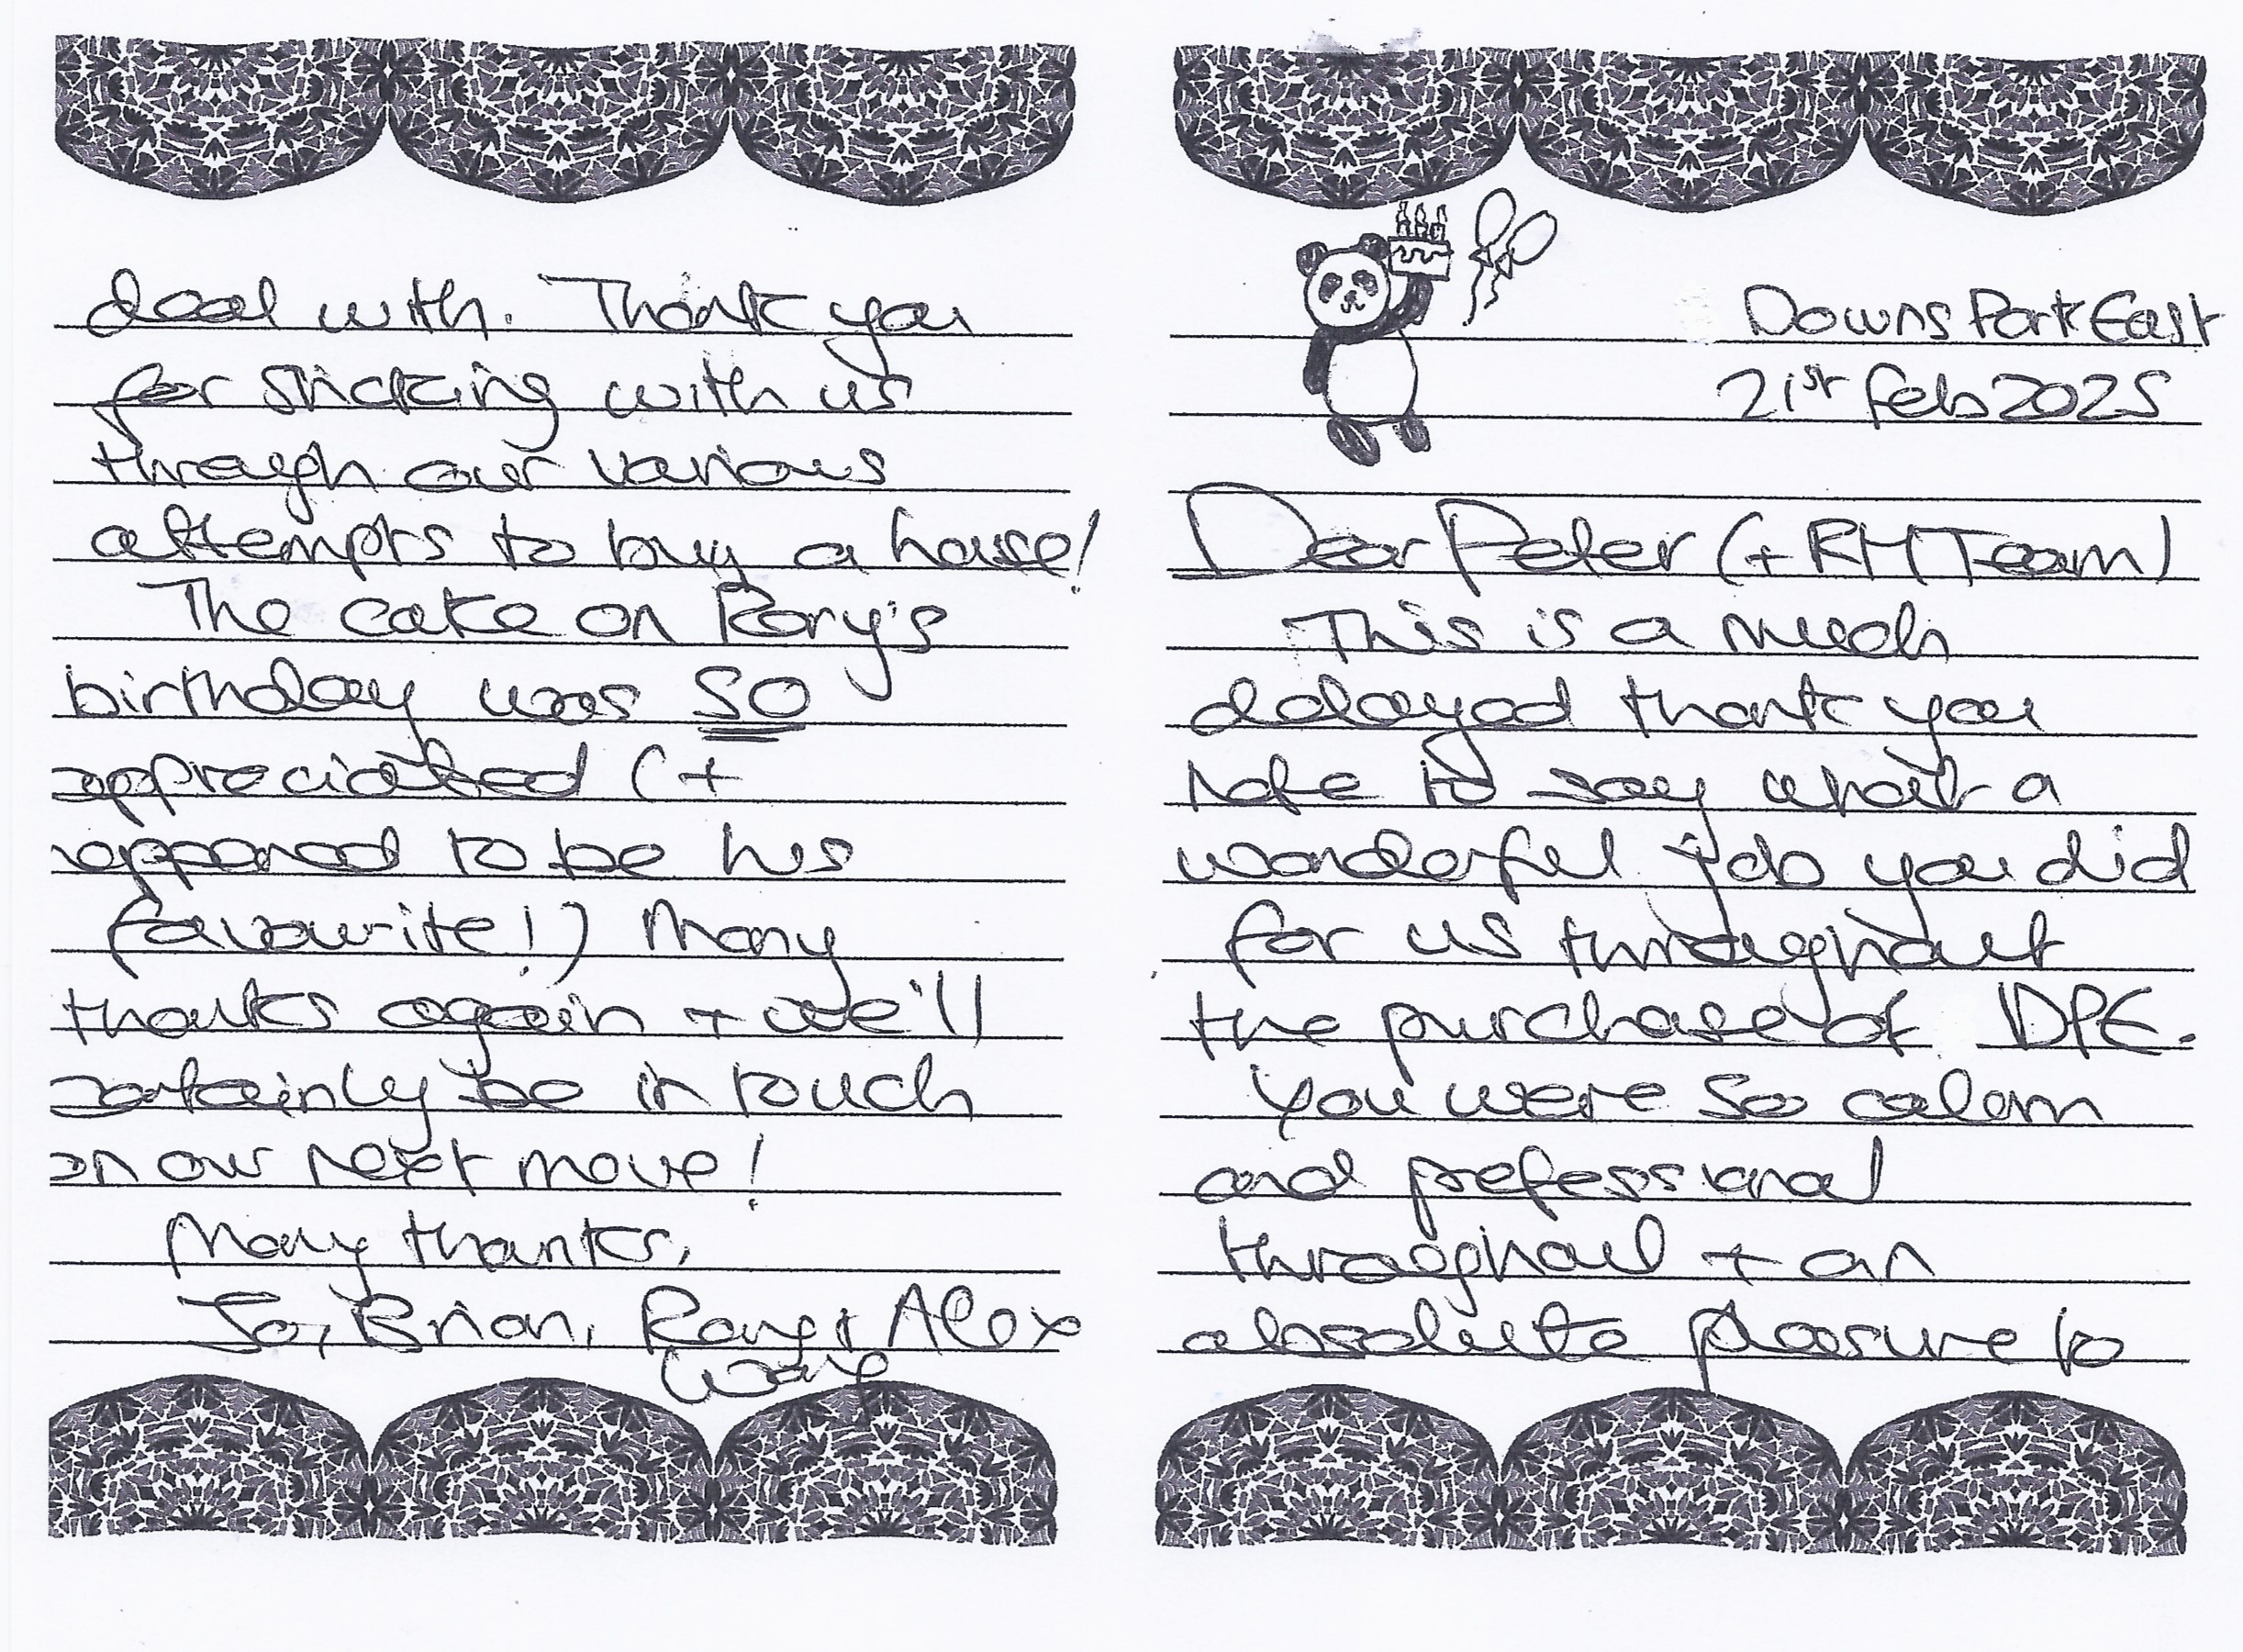 Downs Park East
21st Feb 2025
Dear Peter (+ RH Team)
This is a much
delayed thank you
note to say what a
wonderful job you did
for us throughout
the purchase of DPE.
You were so calm
and professional
throughout + an
absolute pleasure to
deal with. Thank you
for sticking with us
through our various
attempts to buy a house!
The cake on Rory's
birthday was SO
appreciated (+
appeared to be his
favourite!) Many
thanks again + we'll
certainly be in touch
on our next move!
Many thanks,
Jo, Brian, Rory + Alex